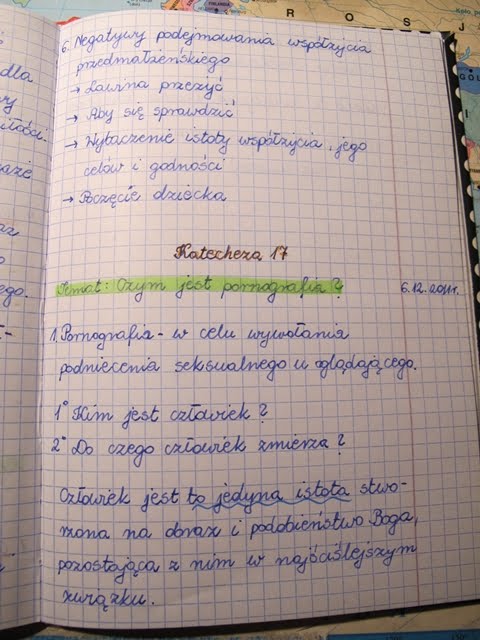 R O S J
dla
6. Negatywy podejmowania współżycia
przedmałżeńskiego
→ Lawina przeżyć
→ Aby się sprawdzić
→ istoty współżycia, jego
celów i godności
→ Poczęcie dziecka
Katecheza 17
Temat: Czym jest pornografia? 6.12.2011r.
1. Pornografia - w celu wywołania
podniecenia seksualnego u oglądającego.
1° Kim jest człowiek?
2° Do czego człowiek zmierza?
Człowiek jest to jedyna istota stwo-
rzona na obraz i podobieństwo Boga,
pozostająca z nim w najściślejszym
związku.